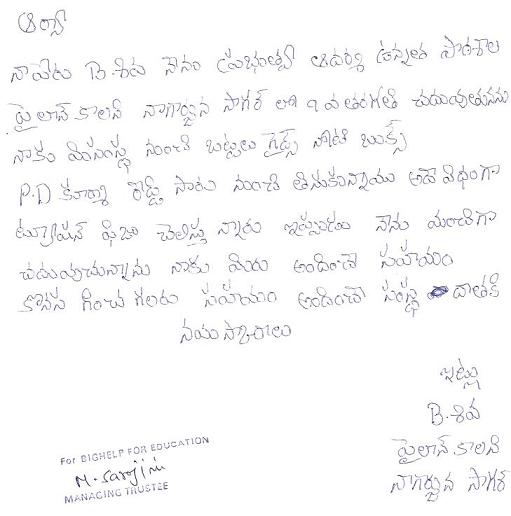 నాపేరు B. శివ నేను ప్రభుత్వ ఆదర్శ ఉన్నత పాఠశాల
పైలాన్ కాలనీ నాగార్జున సాగర్ లో 9 వ తరగతి చదువుతున్నను
నాకు మీసంస్థ నుంచి బట్టలు గైడ్స్ నోట్ బుక్స్
P.D రెడ్డి సారు నుంచి తీసుకున్నాము అదే విధంగా
ట్యూషన్ ఫీజు చెలిస్తు న్నారు ఇప్పుడు నేను మంచిగా
చదువుచున్నాను నాకు మీరు అందించే సహాయం
కొనసాగించ గలరు సహాయం అందించే సంస్థ దాతకి
నమస్కారాలు
ఇట్లు
B. శివ
పైలాన్ కాలనీ
నాగార్జున సాగర్
For BIGHELP FOR EDUCATION
M. Sarojini
MANAGING TRUSTEE